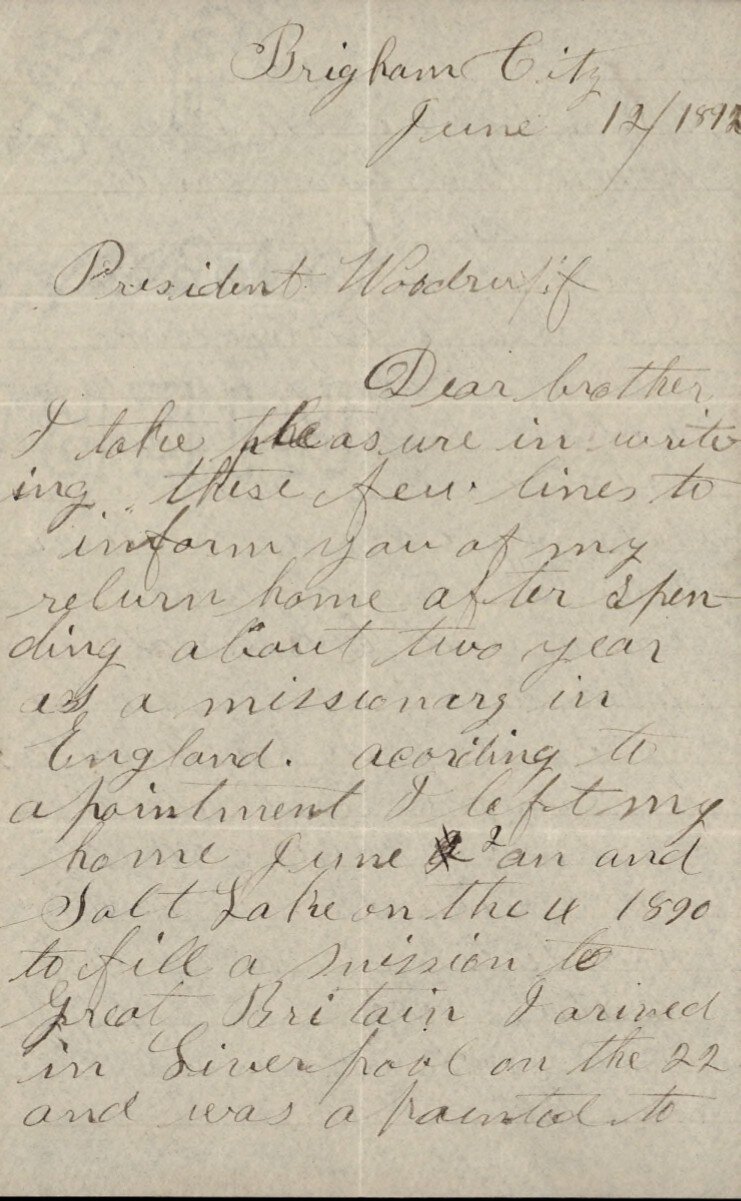 Brigham City
June 12/1892
President Woodruff
Dear brother
I take pleasure in writ
ing these few lines to
inform you of my
return home after spen-
ding about two year
as a missionary in
England. acording to
apointment I left my
home June 2 an and
Salt Lake on the 4 1890
to fill a mission to
Great Britain I arived
in Liverpool on the 22
and was apointed to